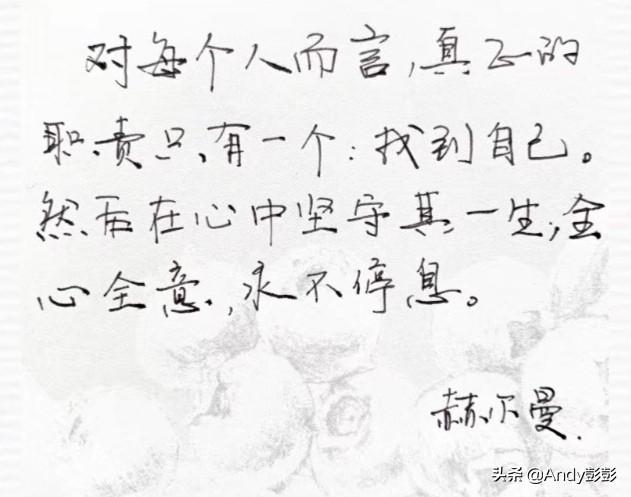 对每个人而言,真正的
职责只有一个:找到自己。
然后在心中坚守其一生,全
心全意,永不停息。
赫尔曼.
头条 @Andy彭彭